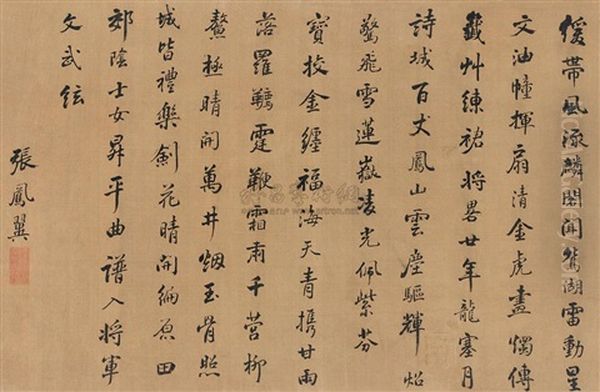 緩帶風流麟閣開鴛湖雷動星
文油幢揮扇清金虎畫燭傳
籤艸練裙將畧廿年龍塞月
詩城百丈鳳山雲塵驅輝炤
驚飛雪蓮嶽凌光佩紫芬
寶校金纏福海天青携甘雨
落羅韉霆鞭霜肅千營柳
鰲極晴開萬井烟玉胥照
城皆禮樂劍花晴開徧原田
郊陰士女昇平曲譜入將軍
文武絃
張鳳翼